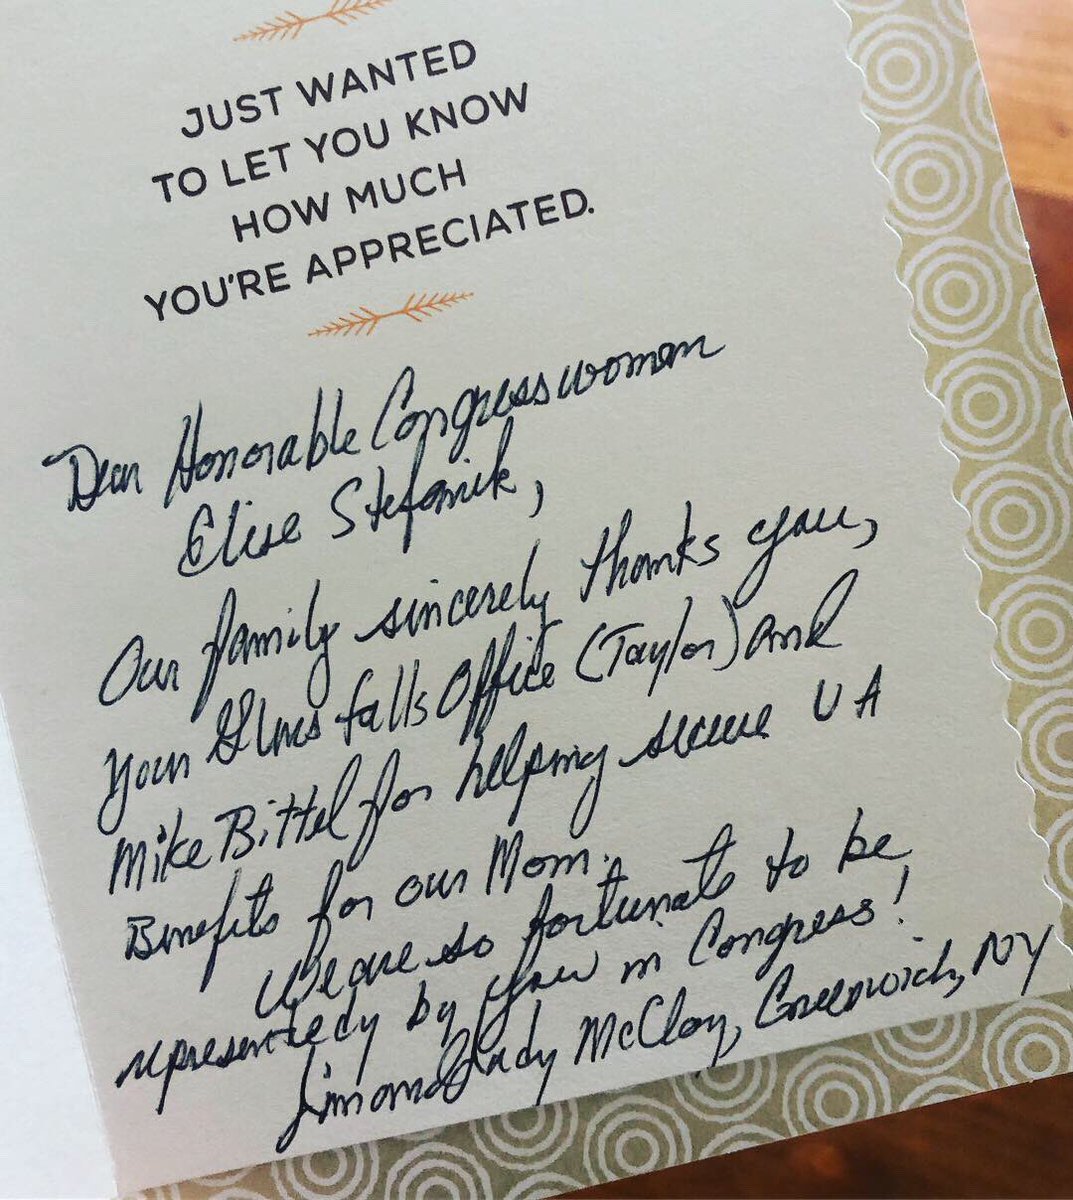 JUST WANTED
TO LET YOU KNOW
HOW MUCH
YOU'RE APPRECIATED.
Dear Honorable Congresswoman
Elise Stefanik,
Our family sincerely thanks you,
your Glens Falls Office (Taylor) and
Mike Bittel for helping secure VA
Benefits for our Mom.
We are so fortunate to be
represented by you in Congress!
McCloy, Greenwich, NY